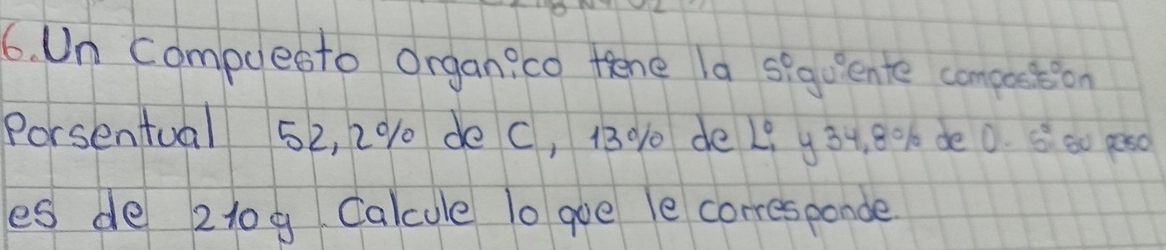 6. Un compuesto organico tiene la siguiente composicion
Porsentual 52,2% de C, 13% de Li y 34,8% de O. Si su peso
es de 210g. Calcule lo que le corresponde